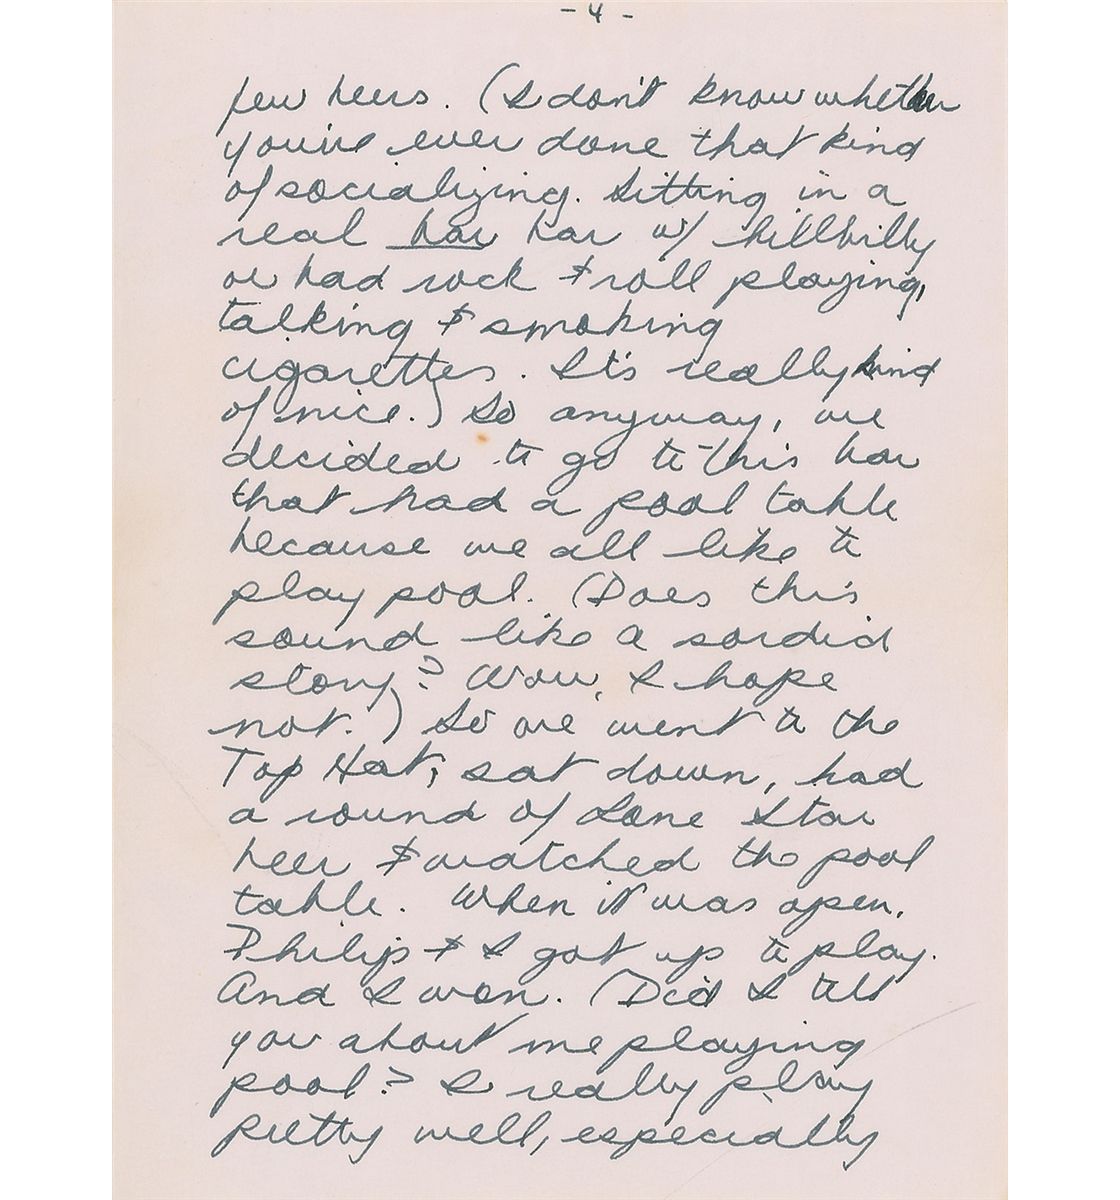 - 4 -
few beers. (I don't know whether
you've ever done that kind
of socializing. Sitting in a
real bar bar w/ hillbilly
or bad rock & roll playing,
talking & smoking
cigarettes. It's really kind
of nice.) So anyway, we
decided to go to this bar
that had a pool table
because we all like to
play pool. (Does this
sound like a sordid
story? Wow, I hope
not.) So we went to the
Top Hat, sat down, had
a round of Lone Star
beer & watched the pool
table. When it was open,
Philip & I got up to play.
And I won. (Did I tell
you about me playing
pool? I really play
pretty well, especially